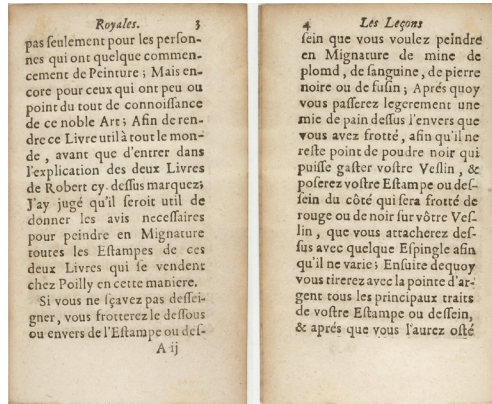 Royales. 3
pas ſeulement pour les perſon-
nes qui ont quelque commen-
cement de Peinture ; Mais en-
core pour ceux qui ont peu ou
point du tout de connoiſſance
de ce noble Art ; Afin de ren-
dre ce Livre util à tout le mon-
de , avant que d'entrer dans
l'explication des deux Livres
de Robert cy-deſſus marquez;
J'ay jugé qu'il ſeroit util de
donner les avis neceſſaires
pour peindre en Mignature
toutes les Eſtampes de ces
deux Livres qui ſe vendent
chez Poilly en cette maniere.
Si vous ne ſçavez pas deſſei-
gner, vous frotterez le deſſous
ou envers de l'Eſtampe ou deſ-
A ij
4 Les Leçons
ſein que vous voulez peindre
en Mignature de mine de
plomd , de ſanguine, de pierre
noire ou de fuſin ; Aprés quoy
vous paſſerez legerement une
mie de pain deſſus l'envers que
vous avez frotté, afin qu'il ne
reſte point de poudre noir qui
puiſſe gaſter voſtre Veſlin , &
poſerez voſtre Eſtampe ou deſ-
ſein du côté qui ſera frotté de
rouge ou de noir ſur vôtre Veſ-
lin , que vous attacherez deſ-
ſus avec quelque Eſpingle afin
qu'il ne varie ; Enſuite dequoy
vous tirerez avec la pointe d'ar-
gent tous les principaux traits
de voſtre Eſtampe ou deſſein,
& aprés que vous l'aurez oſté